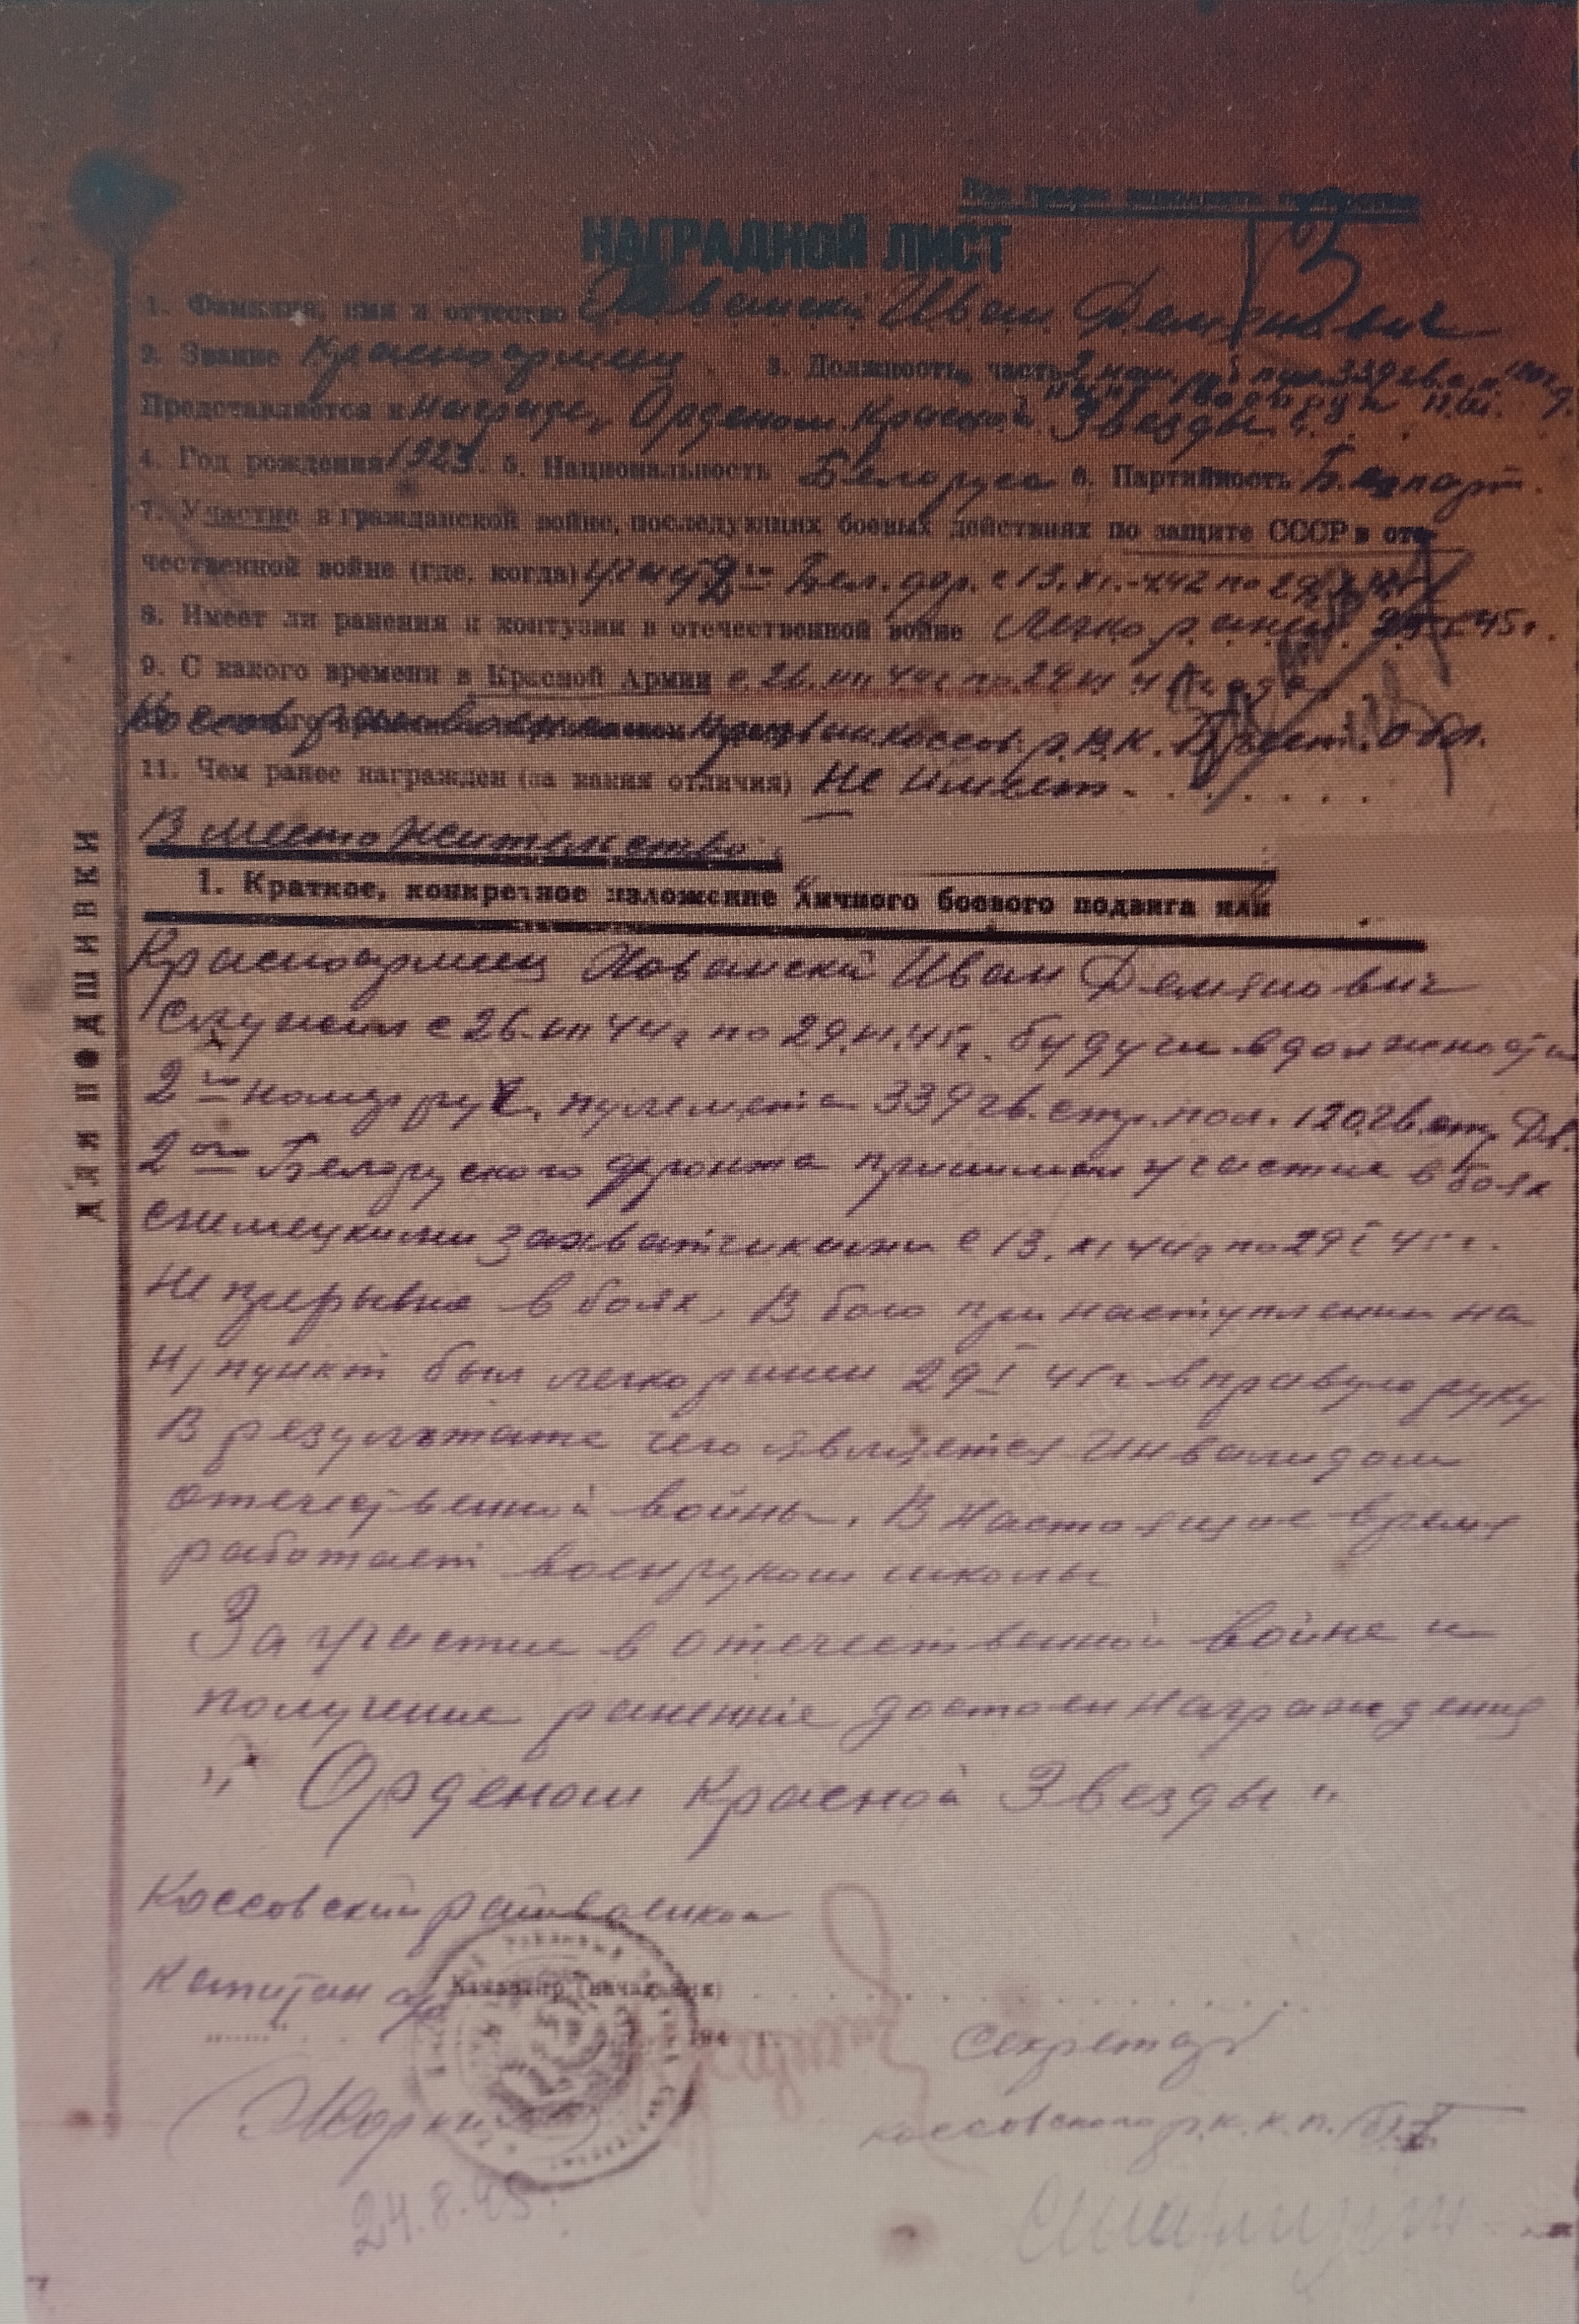 НАГРАДНОЙ ЛИСТ
1. Фамилия, имя и отчество Хованский Иван Демянович
2. Звание Красноармеец 3. Должность, часть 2 ном. пул. 339 гв.с.п. 120 г.
Представляется к Награде, Орденом Красной Звезды.
4. Год рождения 1923. 5. Национальность Белорус 6. Партийность Б. парт.
7. Участие в гражданской войне, последующих боевых действиях по защите СССР в оте-
чественной войне (где, когда) 2ой Бел. фр. с 13.XI. по 29
8. Имеет ли ранения и контузии в отечественной войне Легко ранен 45г.
9. С какого времени в Красной Армии с 26.VII 44г по 29
Коссов. р.в.к. Брест. обл.
11. Чем ранее награжден (за какия отличия) Не имеет.
В место жительство
1. Краткое, конкретное изложение личного боевого подвига или
Красноармеец Хованскй Иван Демянович
Служил с 26.VII 44г по 29.VI.45г. будучи в должности
2го номер руч. пулемета 339 гв. стр. пол. 120 гв. стр. Дв.
2ого Белоруского фронта принимал участие в боях
с немецкими захватчиками с 13.XI 44г по 29 I 45г.
Непрерывно в боях, В бою при наступлении на
н/пункт был легко ранен 29 I 45г в правую руку
В результате чего является Инвалидом
отечественной войны. В настоящее время
работает военруком школы
За участие в отечественной войне и
получение ранение достоен награждения
„ Орденом Красной Звезды "
Коссовский райвоенком
Капитан
Командир (начальник)
194 г.
Секретарь
Коссовского р.к. к.п./б/Б
24.8.45.
ДЛЯ ПОДШИВКИ